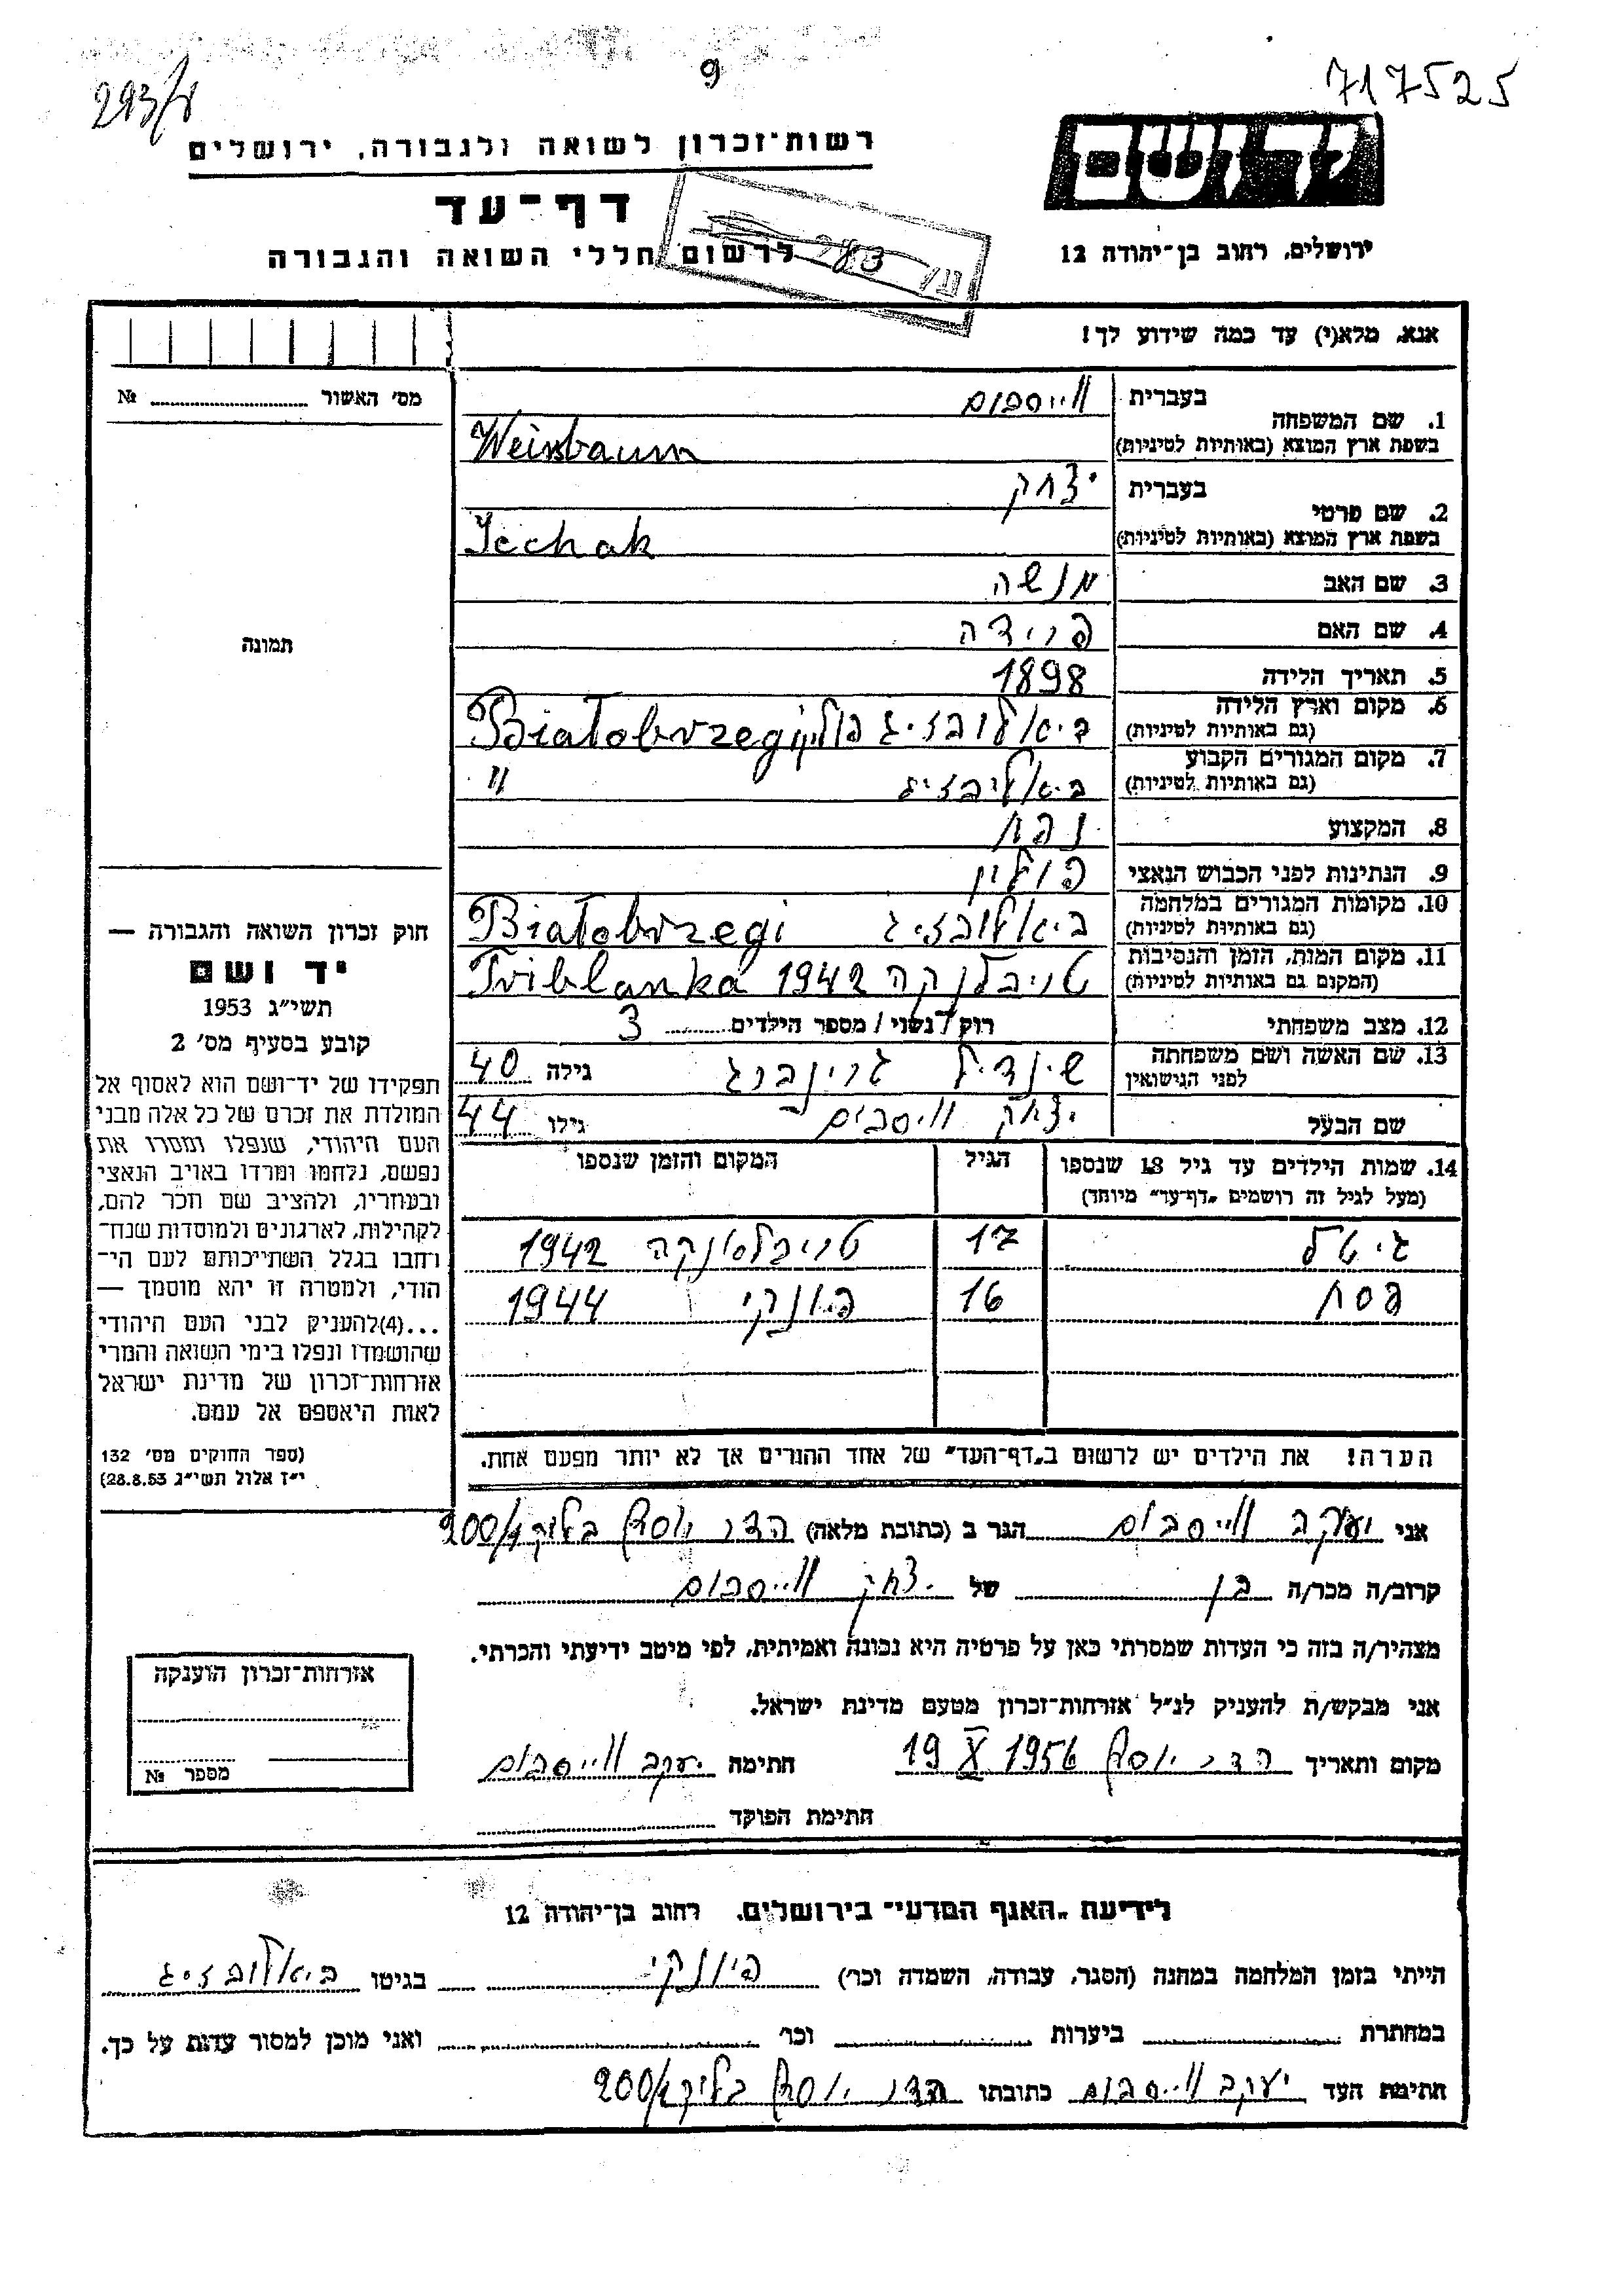 717525
9
293/8
יד ושם
ירושלים, רחוב בן־יהודה 12
רשות־זכרון לשואה ולגבורה, ירושלים
דף־עד
לרשום חללי השואה והגבורה
283
אנא, מלא(י) עד כמה שידוע לך!
מס׳ האשור № 
תמונה
חוק זכרון השואה והגבורה —
יד ושם
תשי״ג 1953
קובע בסעיף מס׳ 2
תפקידו של יד־ושם הוא לאסוף אל
המולדת את זכרם של כל אלה מבני
העם היהודי, שנפלו ומסרו את
נפשם, נלחמו ומרדו באויב הנאצי
ובעוזריו, ולהציב שם וזכר להם,
לקהילות, לארגונים ולמוסדות שנח־
רחבו בגלל השתייכותם לעם הי־
הודי, ולמטרה זו יהא מוסמך —
...(4)להעניק לבני העם היהודי
שהושמדו ונפלו בימי השואה והמרי
אזרחות־זכרון של מדינת ישראל
לאות היאספם אל עמם.
(ספר החוקים מס׳ 132
י״ז אלול תשי״ג 28.8.53)
1. שם המשפחה בעברית וייסבוים
בשפת ארץ המוצא (באותיות לטיניות) Weissbaum
2. שם פרטי בעברית יצחק
בשפת ארץ המוצא (באותיות לטיניות) Icchak
3. שם האב מנשה
4. שם האם פרידה
5. תאריך הלידה 1898
6. מקום וארץ הלידה (גם באותיות לטיניות) ביאלובזיג פולין Białobrzegi
7. מקום המגורים הקבוע (גם באותיות לטיניות) ביאלובזיג "
8. המקצוע נפח
9. הנתינות לפני הכבוש הנאצי פולין
10. מקומות המגורים במלחמה (גם באותיות לטיניות) ביאלובזיג Białobrzegi
11. מקום המות, הזמן והנסיבות (המקום גם באותיות לטיניות) טריבלנקה 1942 Triblanka
12. מצב משפחתי רוק/נשוי/מספר הילדים 3
13. שם האשה ושם משפחתה לפני הנישואין שינדיל גרינברג גילה 40
שם הבעל יצחק וייסבוים גילו 44
14. שמות הילדים עד גיל 18 שנספו (מעל לגיל זה רושמים „דף־עד״ מיוחד) הגיל המקום והזמן שנספו
גיטל 17 טריבלנקה 1942
פסח 16 פיונקי 1944
הערה! את הילדים יש לרשום ב„דף־העד״ של אחד ההורים אך לא יותר מפעם אחת.
אני יעקב וייסבוים הגר ב (כתובת מלאה) הדר יוסף בלוק 200/4
קרוב/ה מכר/ה בן של יצחק וייסבוים
מצהיר/ה בזה כי העדות שמסרתי כאן על פרטיה היא נכונה ואמיתית, לפי מיטב ידיעתי והכרתי.
אני מבקש/ת להעניק לנ״ל אזרחות־זכרון מטעם מדינת ישראל.
מקום ותאריך הדר יוסף 19 X 1956 חתימה יעקב וייסבוים
חתימת הפוקד
אזרחות־זכרון הוענקה
מספר №
לידיעת „האגף המדעי״ בירושלים, רחוב בן־יהודה 12
הייתי בזמן המלחמה במחנה (הסגר, עבודה, השמדה וכר׳) פיונקי בגיטו ביאלובזיג
במחתרת ביערות וכר׳ ואני מוכן למסור עדות על כך.
חתימת העד יעקב וייסבוים כתובתו הדר יוסף בלוק 200/4